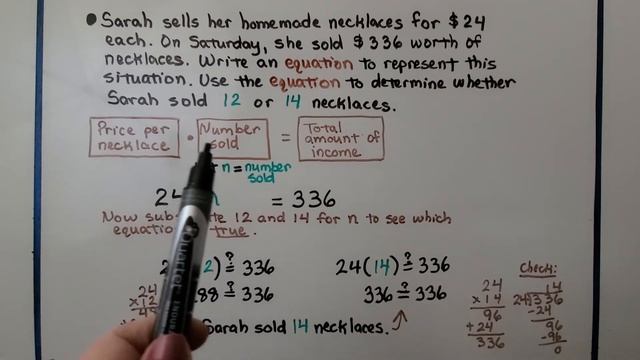 • Sarah sells her homemade necklaces for $24
each. On Saturday, she sold $336 worth of
necklaces. Write an equation to represent this
situation. Use the equation to determine whether
Sarah sold 12 or 14 necklaces.
Price per necklace • Number sold = Total amount of income
n = number sold
24 = 336
Now 12 and 14 for n to see which
equation true.
2) ≟ 336 24(14) ≟ 336
88 ≟ 336 336 ≟ 336
Sarah sold 14 necklaces.
24
x12
24
x14
96
+24
336
Check:
14
24)336
-24
96
-96
0
Quartet